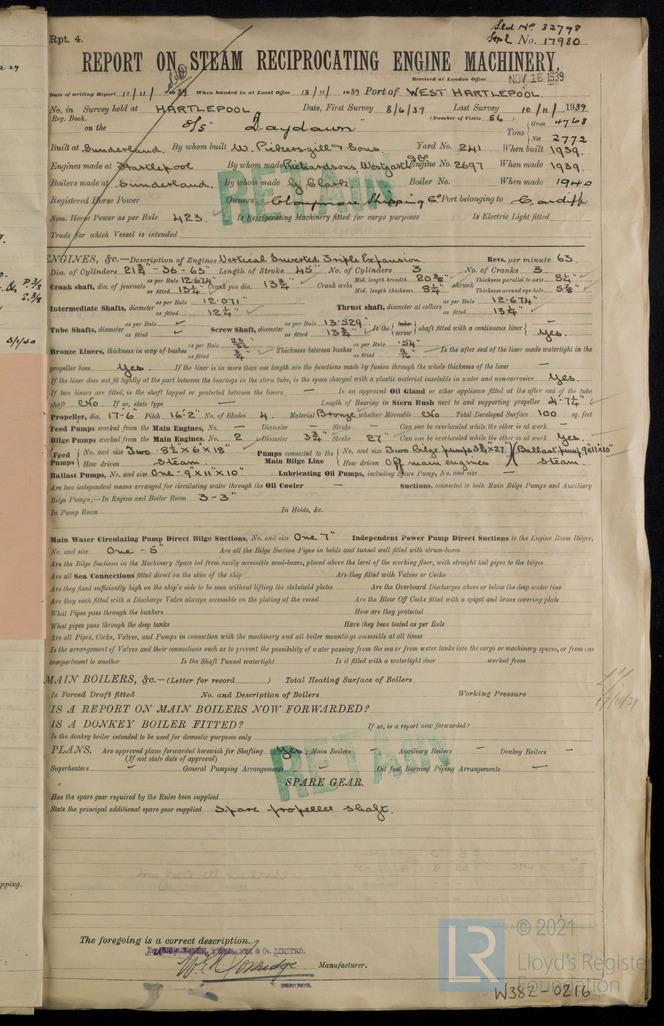 Rpt. 4.
Sld No. 32798
No. 17980
REPORT ON STEAM RECIPROCATING ENGINE MACHINERY.
Received at London Office NOV 16 1939
Date of writing Report 11/11/1939 When handed in at Local Office 13/11/1939 Port of WEST HARTLEPOOL.
No. in Survey held at HARTLEPOOL Date, First Survey 8/6/39 Last Survey 10/11/1939
Reg. Book. (Number of Visits 66)
on the S/S "Daydawn" Tons Gross 4768 Net 2772
Built at Sunderland. By whom built W. Pickersgill & Sons. Yard No. 241 When built 1939.
Engines made at Hartlepool By whom made Richardsons Westgarth Engine No. 2697 When made 1939.
Boilers made at Sunderland. By whom made G. Clark Boiler No. When made 1940
Registered Horse Power Owners Claymore Shipping Co Port belonging to Cardiff
Nom. Horse Power as per Rule 423. Is Refrigerating Machinery fitted for cargo purposes Is Electric Light fitted
Trade for which Vessel is intended
ENGINES, &c.—Description of Engines Vertical Inverted Triple Expansion Revs. per minute 63.
Dia. of Cylinders 21¾ - 36 - 63" Length of Stroke 45" No. of Cylinders 3 No. of Cranks 3
Crank shaft, dia. of journals as per Rule 12.674 as fitted 13¼" Crank pin dia. 13¼" Crank webs Mid. length breadth 20⅜" Mid. length thickness 8¼" shrunk Thickness parallel to axis 8¼" Thickness around eye-hole 5⅞"
Intermediate Shafts, diameter as per Rule 12.071 as fitted 12¼" Thrust shaft, diameter at collars as per Rule 12.674" as fitted 13¼"
Tube Shafts, diameter as per Rule — as fitted — Screw Shaft, diameter as per Rule 13.529 as fitted 13¾" Is the tube screw shaft fitted with a continuous liner Yes.
Bronze Liners, thickness in way of bushes as per Rule as fitted Thickness between bushes as per Rule .54" as fitted Is the after end of the liner made watertight in the
propeller boss Yes. If the liner is in more than one length are the junctions made by fusion through the whole thickness of the liner —
If the liner does not fit tightly at the part between the bearings in the stern tube, is the space charged with a plastic material insoluble in water and non-corrosive Yes.
If two liners are fitted, is the shaft lapped or protected between the liners — Is an approved Oil Gland or other appliance fitted at the after end of the tube
shaft No. If so, state type — Length of Bearing in Stern Bush next to and supporting propeller 4'-7½"
Propeller, dia. 17'-6" Pitch 16'2" No. of Blades 4. Material Bronze. whether Moveable No Total Developed Surface 100 sq. feet
Feed Pumps worked from the Main Engines, No. — Diameter — Stroke — Can one be overhauled while the other is at work —
Bilge Pumps worked from the Main Engines, No. 2 Diameter 3¾" Stroke 27" Can one be overhauled while the other is at work Yes.
Feed Pumps No. and size Two. 8½"x6"x18" How driven Steam. Pumps connected to the Main Bilge Line No. and size Two bilge pumps 3¾"x27" (Ballast pump 9"x11"x10") How driven Off main engines Steam.
Ballast Pumps, No. and size One - 9"x11"x10" Lubricating Oil Pumps, including Spare Pump, No. and size —
Are two independent means arranged for circulating water through the Oil Cooler — Suctions, connected to both Main Bilge Pumps and Auxiliary
Bilge Pumps;—In Engine and Boiler Room 3-3"
In Pump Room In Holds, &c.
Main Water Circulating Pump Direct Bilge Suctions, No. and size One 7" Independent Power Pump Direct Suctions to the Engine Room Bilges,
No. and size One - 5" Are all the Bilge Suction Pipes in holds and tunnel well fitted with strum-boxes
Are the Bilge Suctions in the Machinery Space led from easily accessible mud-boxes, placed above the level of the working floor, with straight tail pipes to the bilges
Are all Sea Connections fitted direct on the skin of the ship Are they fitted with Valves or Cocks
Are they fixed sufficiently high on the ship's side to be seen without lifting the stokehold plates Are the Overboard Discharges above or below the deep water line
Are they each fitted with a Discharge Valve always accessible on the plating of the vessel Are the Blow Off Cocks fitted with a spigot and brass covering plate
What Pipes pass through the bunkers How are they protected
What pipes pass through the deep tanks Have they been tested as per Rule
Are all Pipes, Cocks, Valves, and Pumps in connection with the machinery and all boiler mountings accessible at all times
Is the arrangement of Valves and their connections such as to prevent the possibility of water passing from the sea or from water tanks into the cargo or machinery spaces, or from one
compartment to another Is the Shaft Tunnel watertight Is it fitted with a watertight door worked from
MAIN BOILERS, &c.—(Letter for record ) Total Heating Surface of Boilers
Is Forced Draft fitted No. and Description of Boilers Working Pressure
IS A REPORT ON MAIN BOILERS NOW FORWARDED?
IS A DONKEY BOILER FITTED? If so, is a report now forwarded?
Is the donkey boiler intended to be used for domestic purposes only
PLANS. Are approved plans forwarded herewith for Shafting Yes Main Boilers — Auxiliary Boilers — Donkey Boilers —
(If not state date of approval)
Superheaters — General Pumping Arrangements — Oil fuel Burning Piping Arrangements —
SPARE GEAR.
Has the spare gear required by the Rules been supplied
State the principal additional spare gear supplied Spare propeller shaft.
RETAIN
RETAIN
The foregoing is a correct description.
Manufacturer.
© 2021
LR Lloyd's Register
Foundation
W382-0216